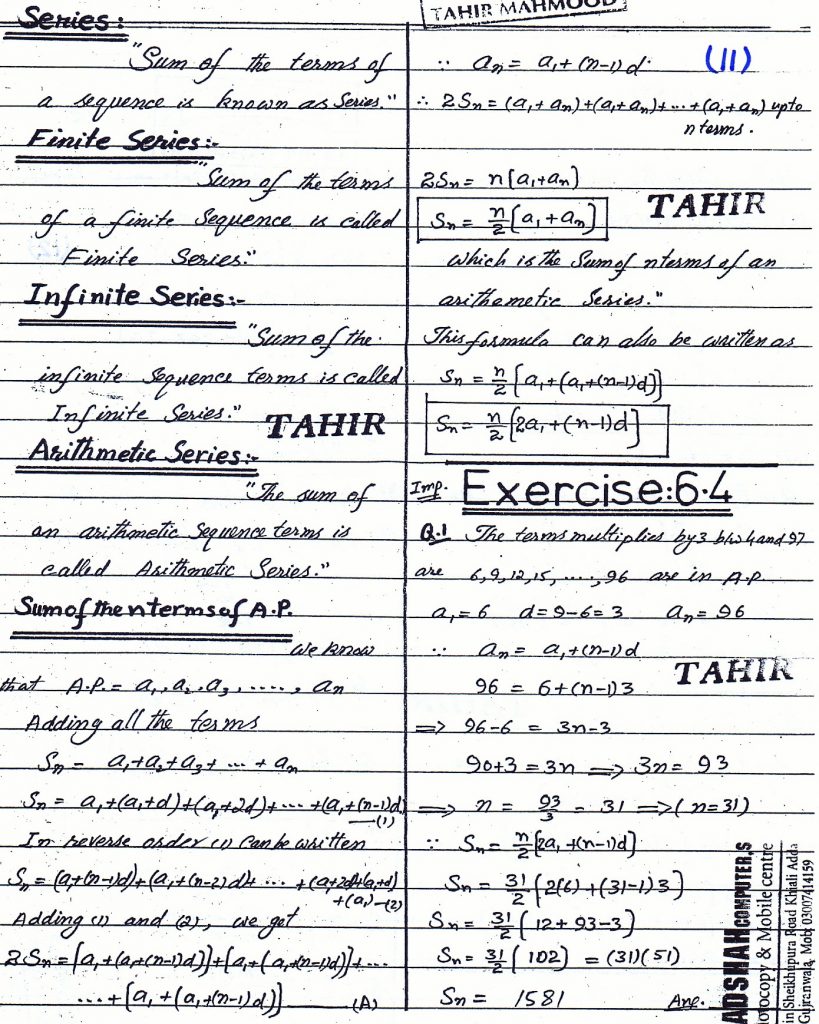 TAHIR MAHMOOD
Series:
"Sum of the terms of
a sequence is known as Series."
Finite Series:-
"Sum of the terms
of a finite Sequence is called
Finite Series."
Infinite Series:-
"Sum of the
infinite Sequence terms is called
Infinite Series."
TAHIR
Arithmetic Series:-
"The sum of
an arithmetic Sequence terms is
called Arithmetic Series."
Sum of the n terms of A.P.
we know
that A.P. = a₁, a₂, a₃, ....., aₙ
Adding all the terms
Sₙ = a₁+a₂+a₃+ ... + aₙ
Sₙ = a₁+(a₁+d)+(a₁+2d)+....+(a₁+(n-1)d) —(1)
In reverse order (1) can be written
Sₙ=(a₁+(n-1)d)+(a₁+(n-2)d)+ ... +(a₁+2d)+(a₁+d)
+(a₁) —(2)
Adding (1) and (2), we get
2Sₙ=[a₁+(a₁+(n-1)d)]+[a₁+(a₁+(n-1)d)]+...
...+[a₁+(a₁+(n-1)d)] — (A)
∵ aₙ = a₁+(n-1)d (11)
∴ 2Sₙ = (a₁+aₙ)+(a₁+aₙ)+...+(a₁+aₙ) upto
n terms.
2Sₙ = n[a₁+aₙ]
Sₙ = n/2[a₁+aₙ]
TAHIR
which is the Sum of n terms of an
arithametic Series."
This formula can also be written as
Sₙ = n/2[a₁+(a₁+(n-1)d)]
Sₙ = n/2[2a₁+(n-1)d]
Imp. Exercise:6.4
Q.1 The terms multiplies by 3 b/w 4 and 97
are 6,9,12,15, ....,96 are in A.P.
a₁=6 d=9-6=3 aₙ=96
∵ aₙ = a₁+(n-1)d
TAHIR
96 = 6+(n-1)3
=> 96-6 = 3n-3
90+3=3n => 3n= 93
=> n = 93/3 = 31 =>(n=31)
∵ Sₙ= n/2[2a₁+(n-1)d]
Sₙ = 31/2[2(6)+(31-1)3]
Sₙ= 31/2[12+93-3]
Sₙ= 31/2[102] = (31)(51)
Sₙ = 1581 Ans.
ADSHAH COMPUTER,S
otocopy & Mobile centre
in Sheikhupura Road Khiali Adda
Gujranwala, Mob: 03007414159